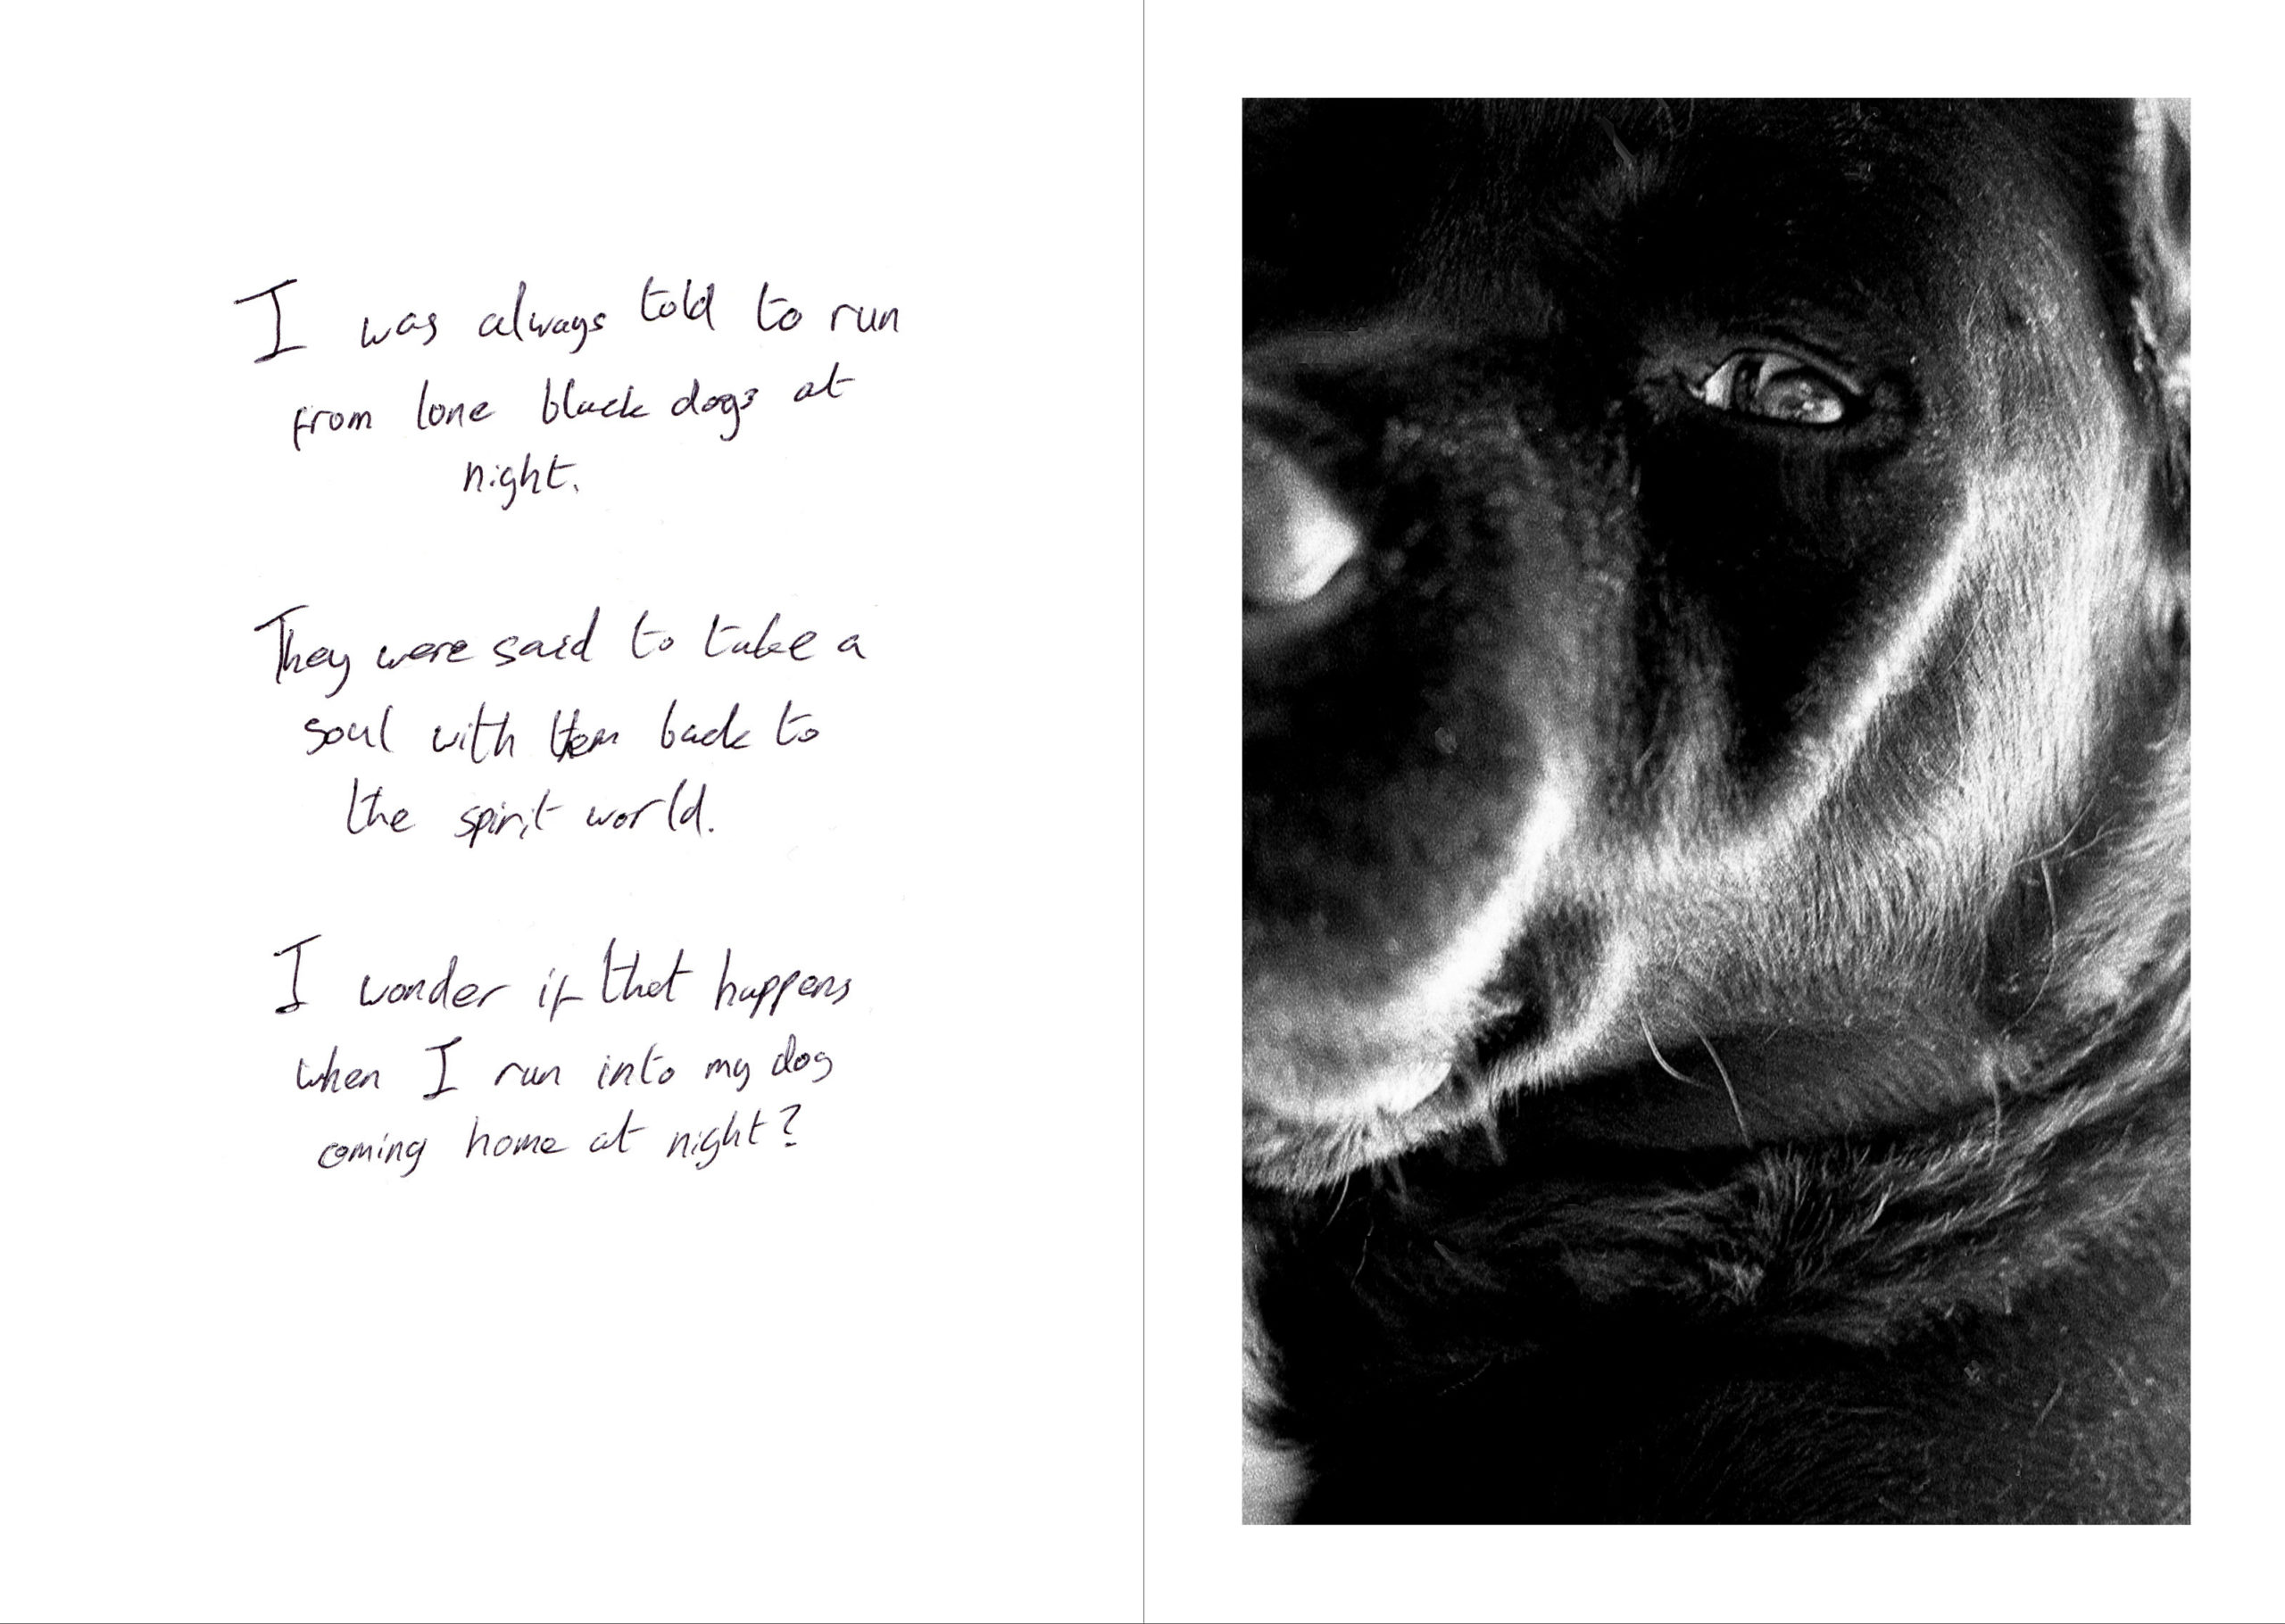 I was always told to run
from lone black dogs at
night.
They were said to take a
soul with them back to
the spirit world.
I wonder if that happens
when I run into my dog
coming home at night?